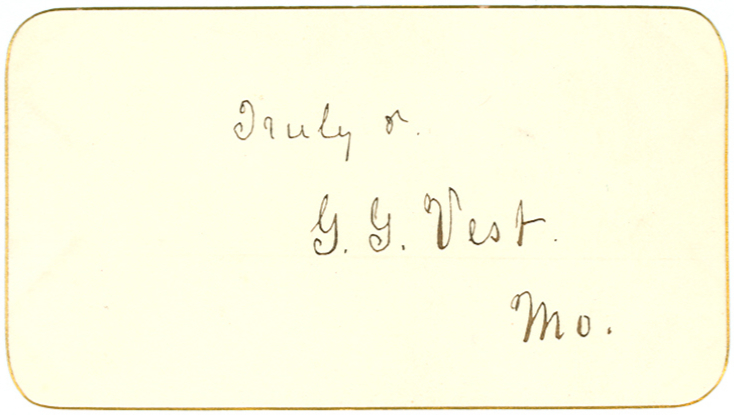 Truly &c.
G. G. Vest.
Mo.